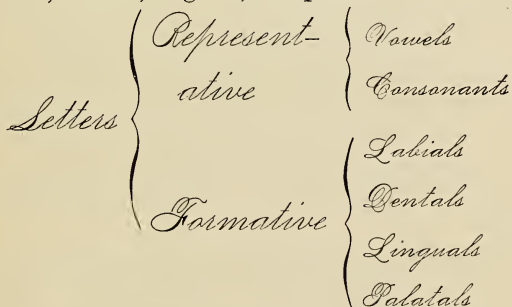 Letters
Represent-
ative
Vowels
Consonants
Formative
Labials
Dentals
Linguals
Palatals